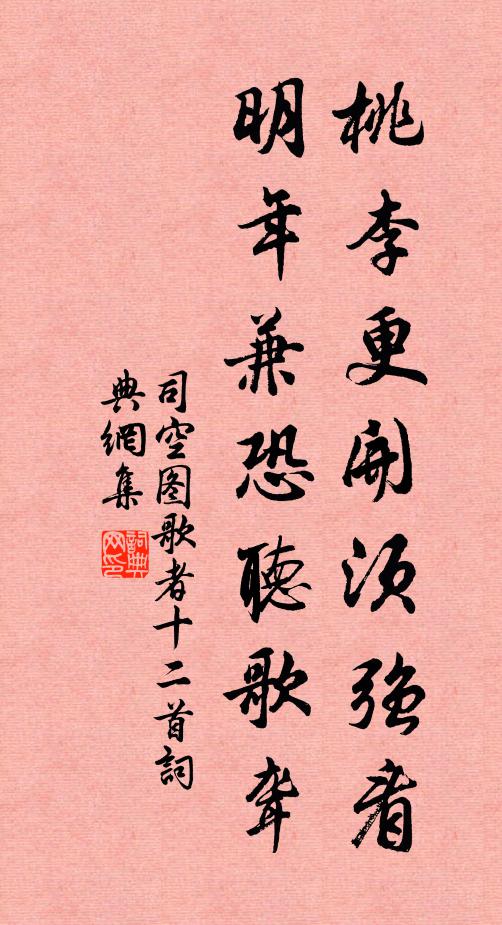 桃李更開須強看
明年兼恐聽歌聾
司空图歌者十二首詞
典網集
詞典网印